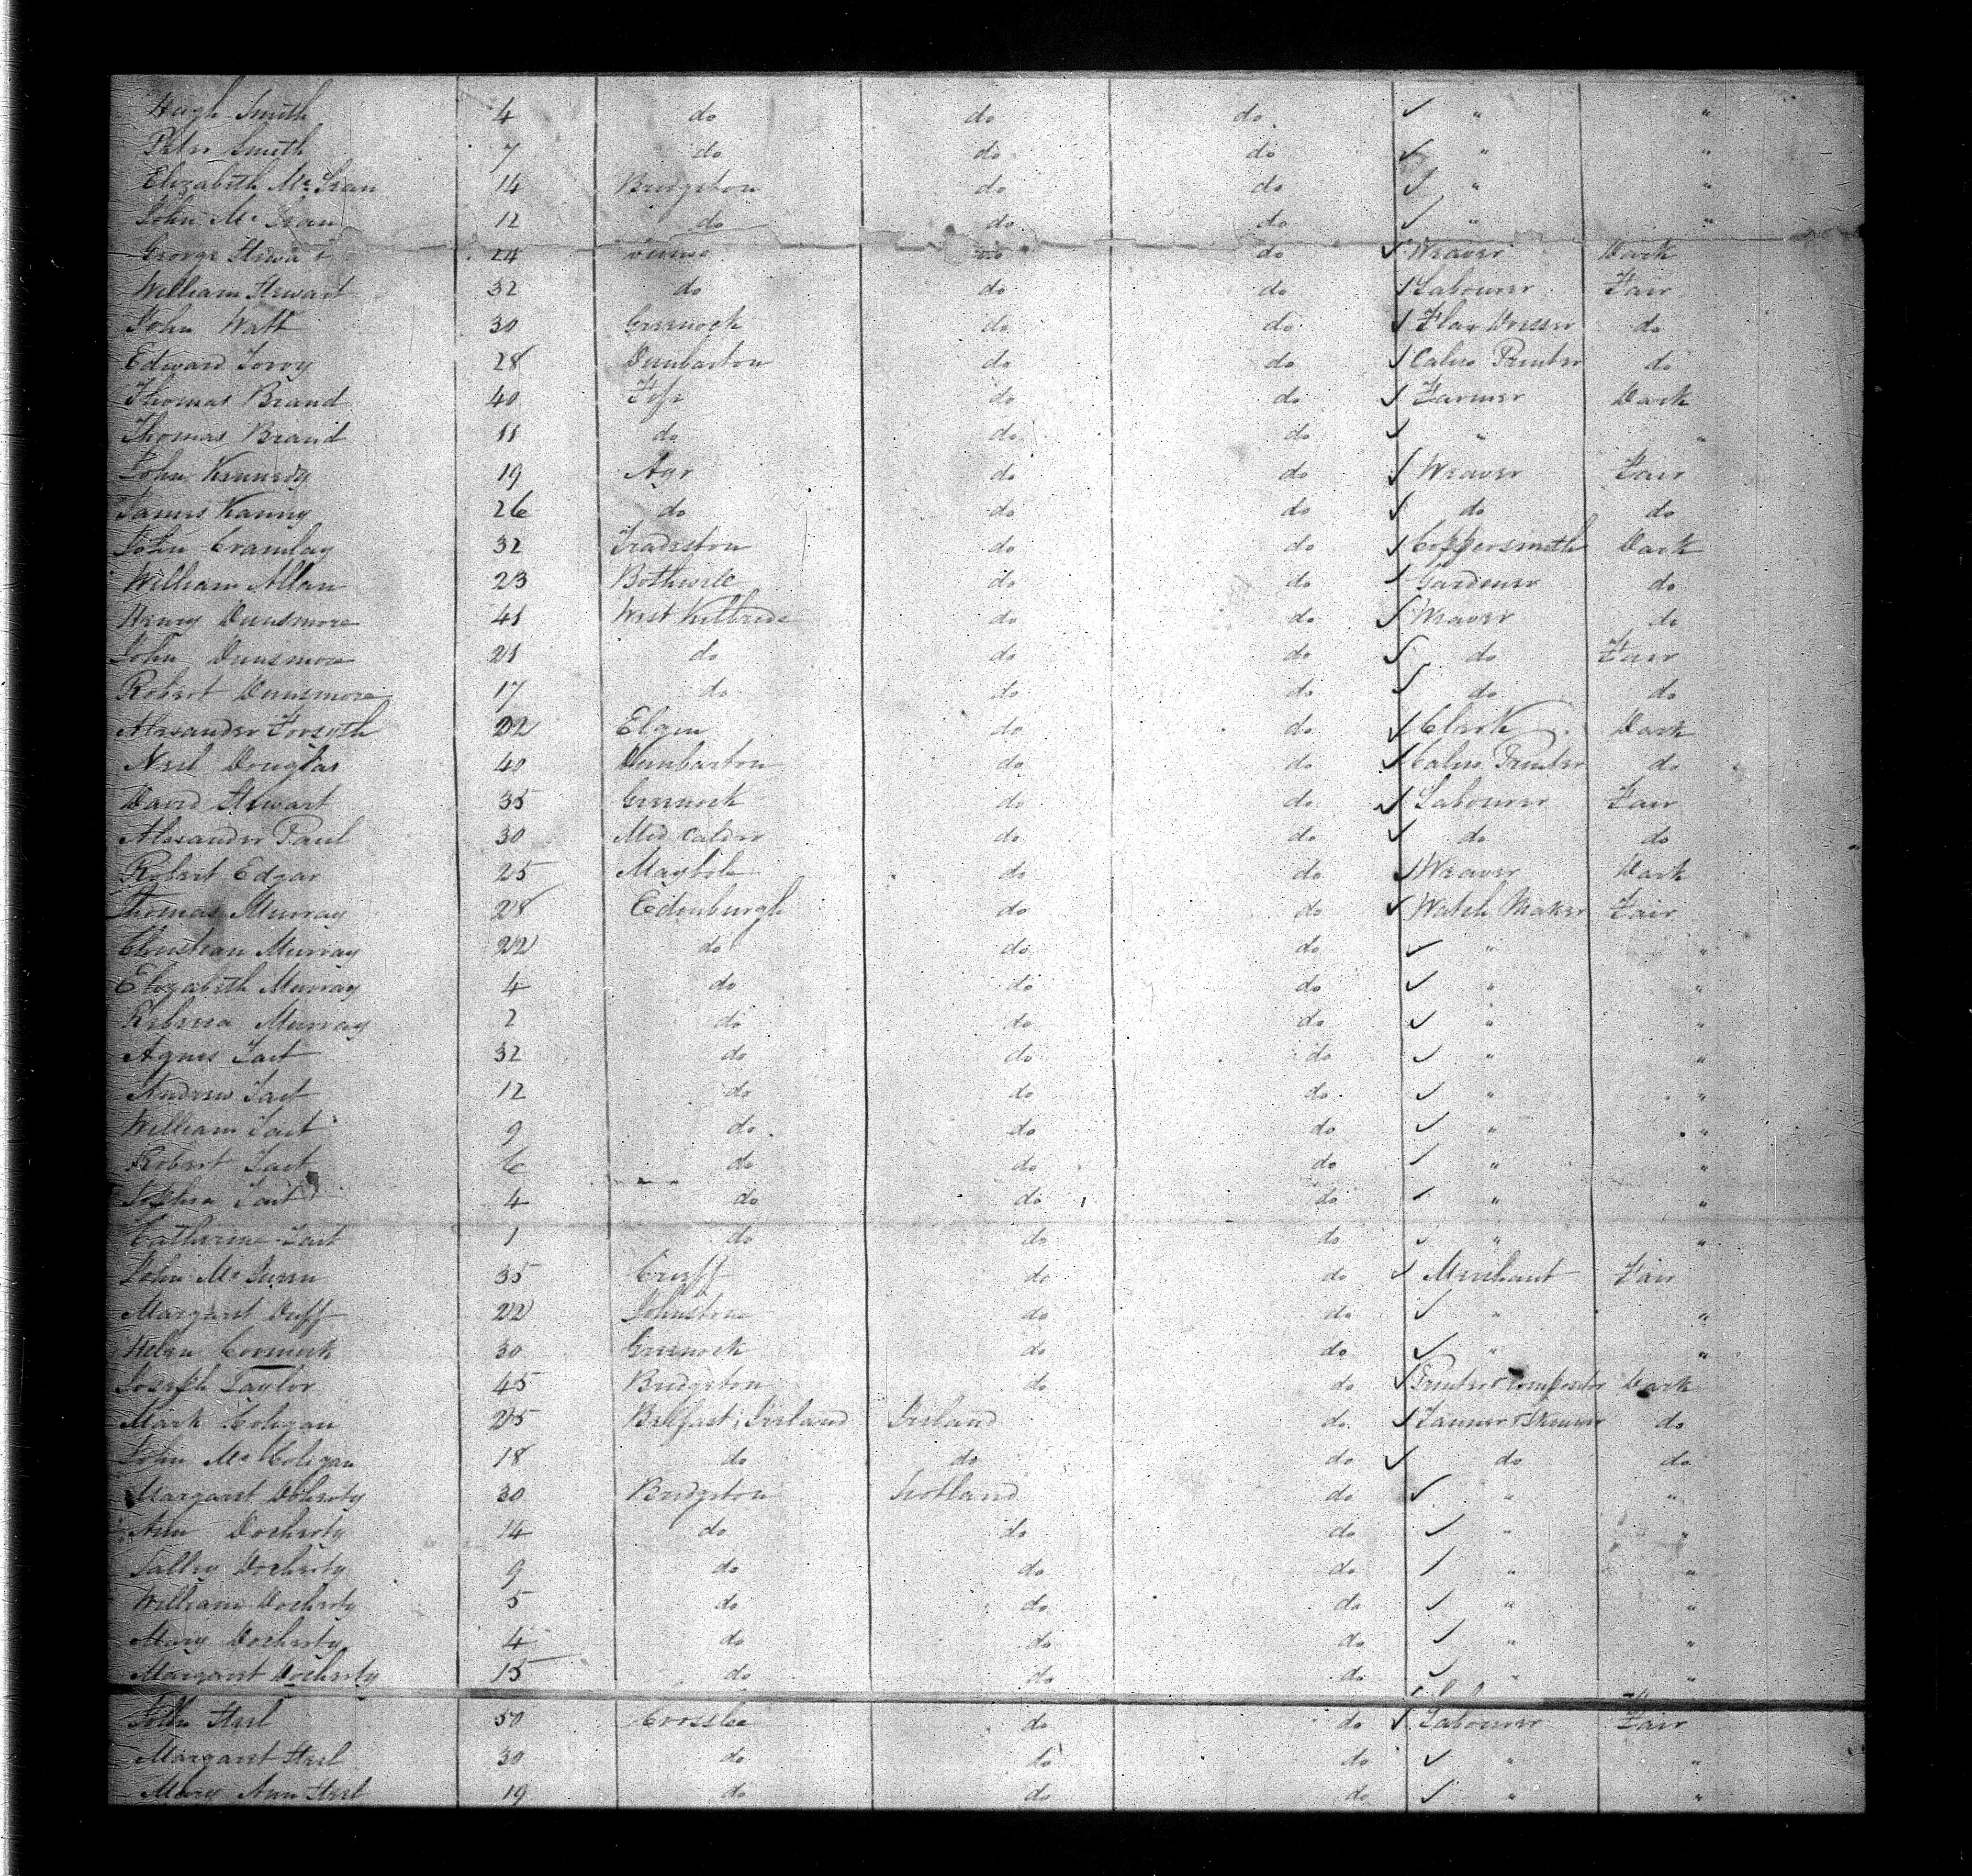 Hugh Smith 4 do do do ✓ " "
Peter Smith 7 do do do ✓ " "
Elizabeth Mc Lean 14 Bridgeton do do ✓ " "
John Mc Lean 12 do do do ✓ " "
George Stewart 24 do do ✓ Weaver Dark
William Stewart 32 do do do ✓ Labourer Fair
John Watt 30 Greenock do do ✓ Flax Dresser do
Edward 28 Dunbarton do do ✓ Calico Printer do
Thomas Brand 40 Fife do do ✓ Farmer Dark
Thomas Brand 11 do do do ✓ " "
John Kennedy 19 Ayr do do ✓ Weaver Fair
James Kanny 26 do do do ✓ do do
John 32 Tradeston do do ✓ Coppersmith Dark
William Allan 23 Bothwell do do ✓ Gardener do
Henry Dunsmore 41 West Kilbride do do ✓ Weaver do
John Dunsmore 21 do do do ✓ do Fair
Robert Dunsmore 17 do do do ✓ do do
Alexander Forsyth 22 Elgin do do ✓ Clerk Dark
Neil Douglas 40 Dunbarton do do ✓ Calico Printer do
David Stewart 35 Greenock do do ✓ Labourer Fair
Alexander Paul 30 Mid Calder do do ✓ do do
Robert Edgar 25 Maybole do do ✓ Weaver Dark
Thomas Murray 28 Edinburgh do do ✓ Watch Maker Fair
Christian Murray 22 do do do ✓ " "
Elizabeth Murray 4 do do do ✓ " "
Rebecca Murray 2 do do do ✓ " "
Agnes Tait 32 do do do ✓ " "
Andrew Tait 12 do do do ✓ " "
William Tait 9 do do do ✓ " "
Robert Tait 6 do do do ✓ " "
Sophia Tait 4 do do do ✓ " "
Catharine Tait 1 do do do ✓ " "
John 35 Crieff do do ✓ Merchant Fair
Margaret Duff 22 Johnstone do do ✓ " "
Helen Cormick 30 Greenock do do ✓ " "
Joseph Taylor 45 Bridgeton do do ✓ Printer & compositor Dark
Mark Coligan 25 Belfast, Ireland Ireland do ✓ Tanner & Skinner do
John Mc Coligan 18 do do do ✓ do do
Margaret Doherty 30 Bridgeton Scotland do ✓ " "
Ann Docherty 14 do do do ✓ " "
Salley Docherty 9 do do do ✓ " "
William Docherty 5 do do do ✓ " "
Mary Docherty 4 do do do ✓ " "
Margaret Docherty 15 do do do ✓ " "
John Steel 50 Crosslee do do ✓ Labourer Fair
Margaret Steel 30 do do do ✓ " "
Mary Ann Steel 19 do do do ✓ " "